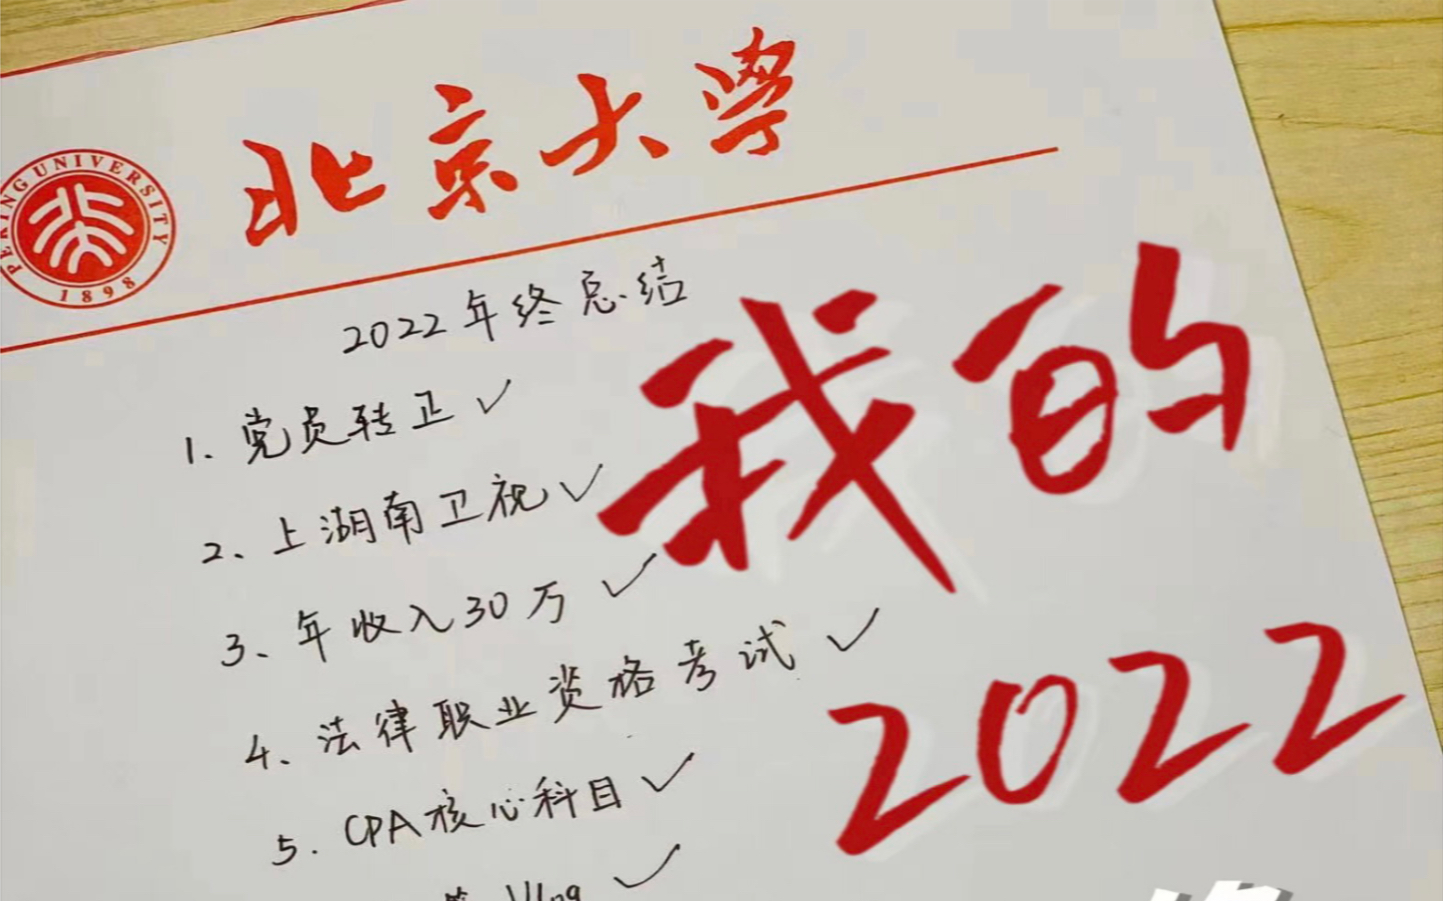 北京大学
PEKING UNIVERSITY
1898
2022年终总结
1. 党员转正 ✓
2、上湖南卫视 ✓
3、年收入30万 ✓
4、法律职业资格考试 ✓
5. CPA核心科目 ✓
Vlog ✓
我的
2022